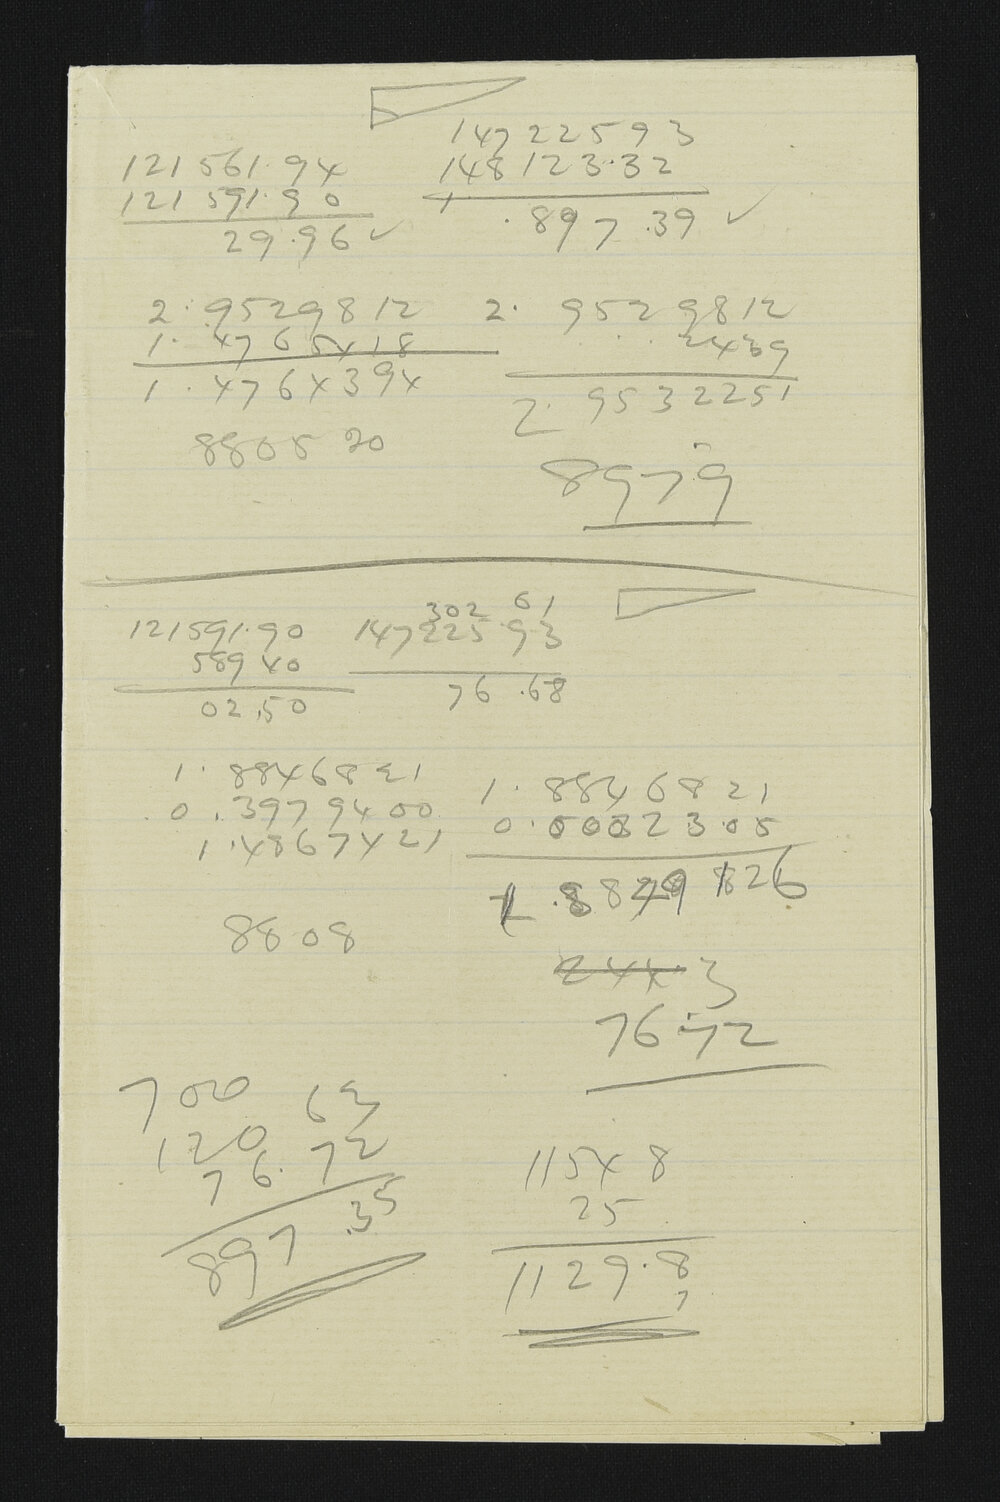 147225 93
121561.94
148123.32
121591.90
.897.39 ✓
29.96 ✓
2.9529812
2. 9529812
1.4765418
2439
1.4764394
2.9532251
880520
897.9
302 61
121591.90
147225 93
589 40
02.50
76.68
1.8846821
1.8846821
0.3979400
0.0082305
1.4867421
1.8849126
8808
244.3
76.72
700 63
120
76.72
1154 8
25
897.35
1129.8
7